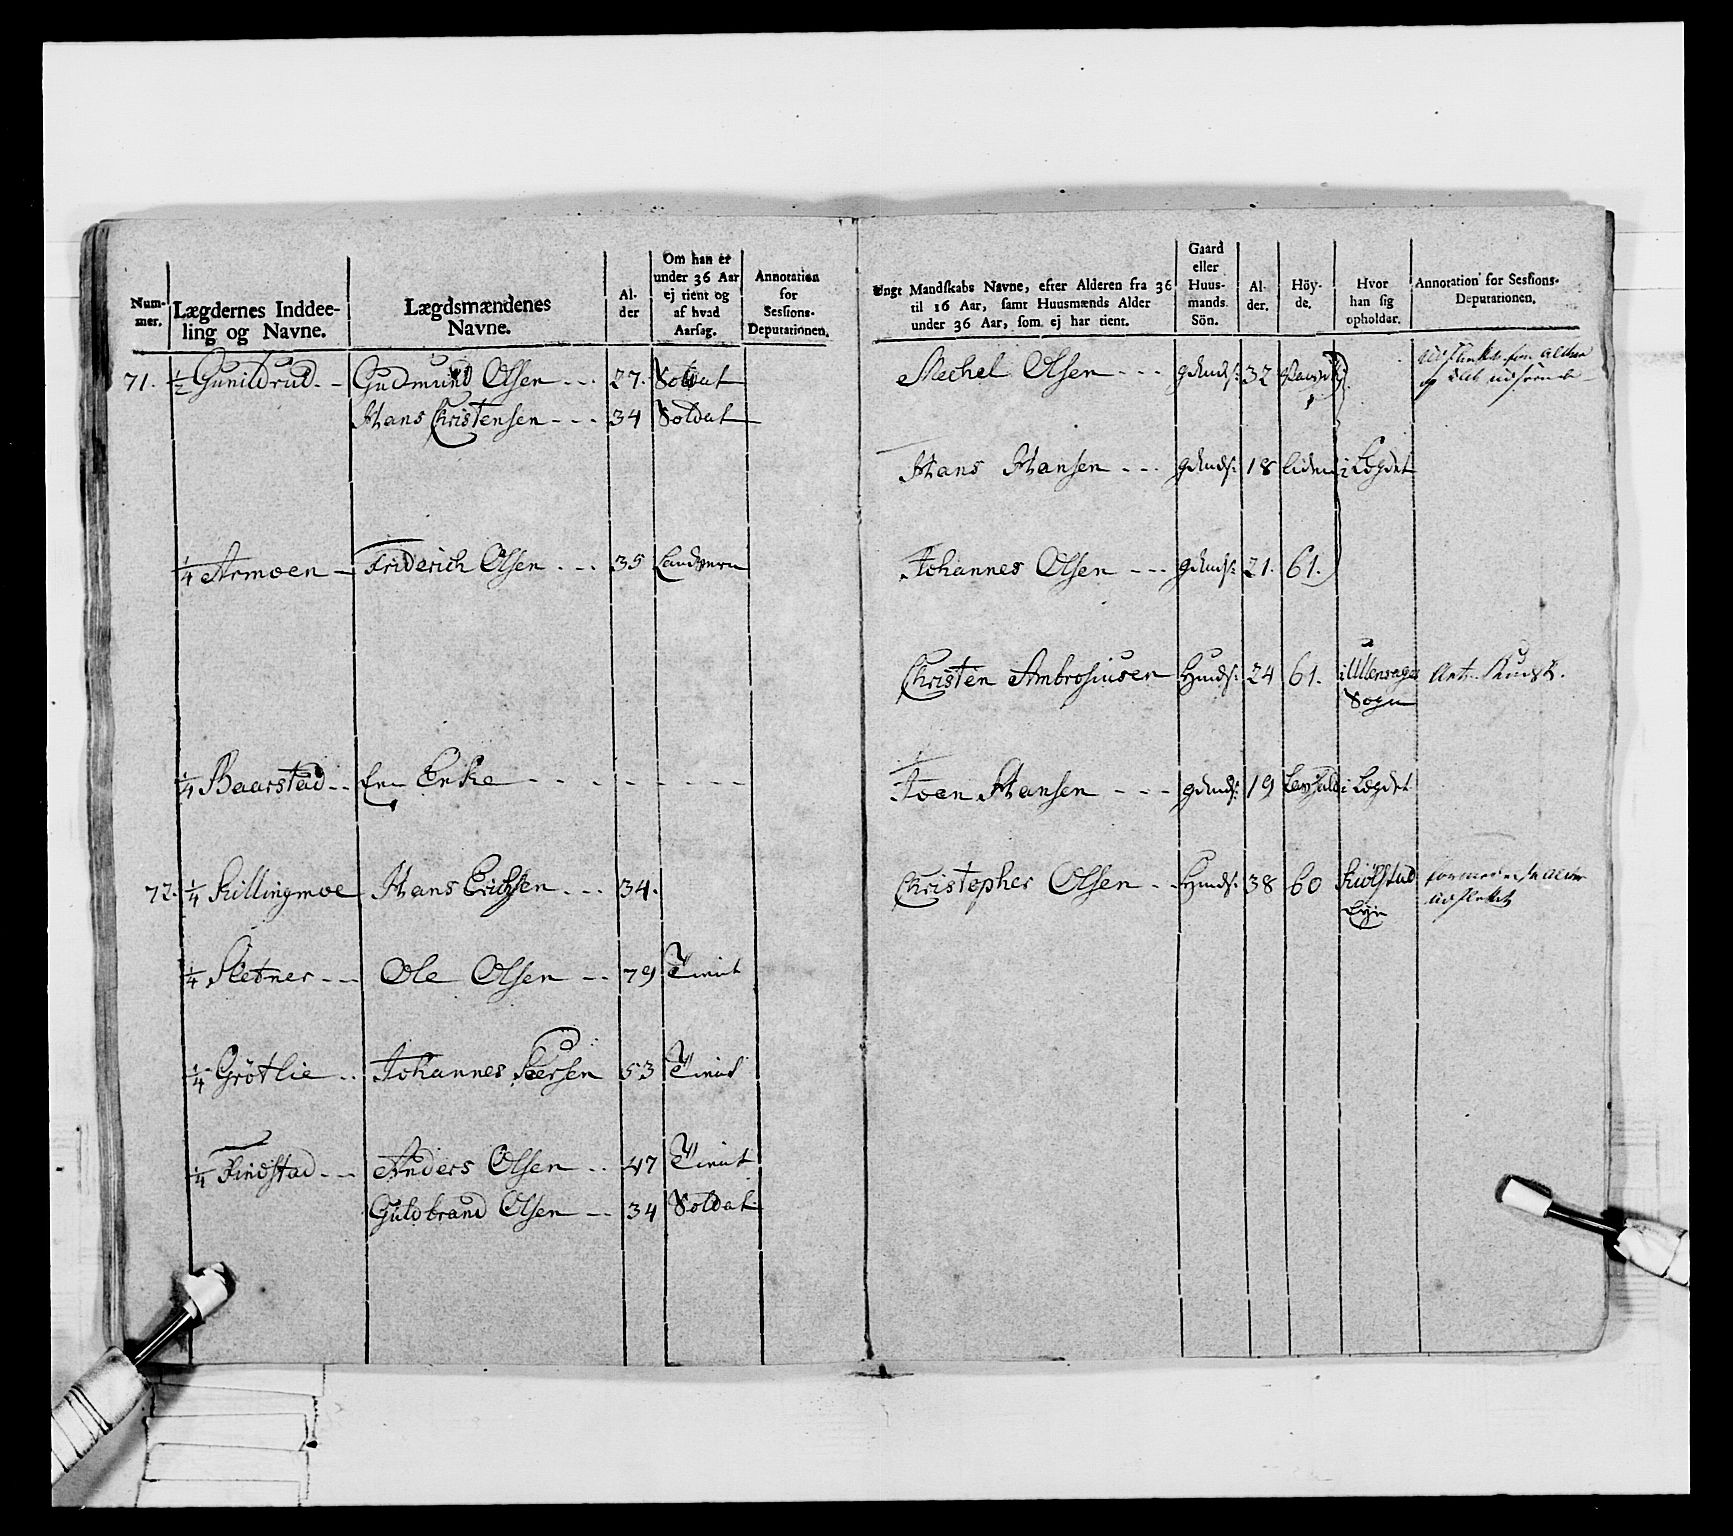 Num-
mer.
Lægdernes Inddee-
ling og Navne.
Lægdsmændenes
Navne.
Al-
der
Om han er
under 36 Aar
ej tient og
af hvad
Aarsag.
Annotation
for
Sessions-
Deputationen.
71. 1/2 Gunildrud Gudmund Olsen 27. Soldat
Hans Christensen 34 Soldat
1/4 Armoen Friderich Olsen 35 Landværn
1/4 Baarstad En Enke
72. 1/4 Killingmoe Hans Erichsen 34.
1/4 Sletner Ole Olsen 79 Tient
1/4 Grøtlie Johannes Peersen 53 Tient
1/4 Findstad Anders Olsen 47 Tient
Guldbrand Olsen 34 Soldat
Ungt Mandskabs Navne, efter Alderen fra 36
til 16 Aar, samt Huusmænds Alder
under 36 Aar, som ej har tient.
Gaard
eller
Huus-
mands
Sön.
Al-
der.
Höy-
de.
Hvor
han sig
opholder.
Annotation for Sessions-
Deputationen.
Mechel Olsen gdmds: 32
Hans Hansen gdmds: 18 liden i Lægdet
Johannes Olsen gdmds: 21. 61.
Christen Ambrosiusen Hmds: 24 61. i Ullensager
Sogn
Joen Hansen gdmds: 19 i Lægdet
Christopher Olsen Hmds: 38 60
udslettet